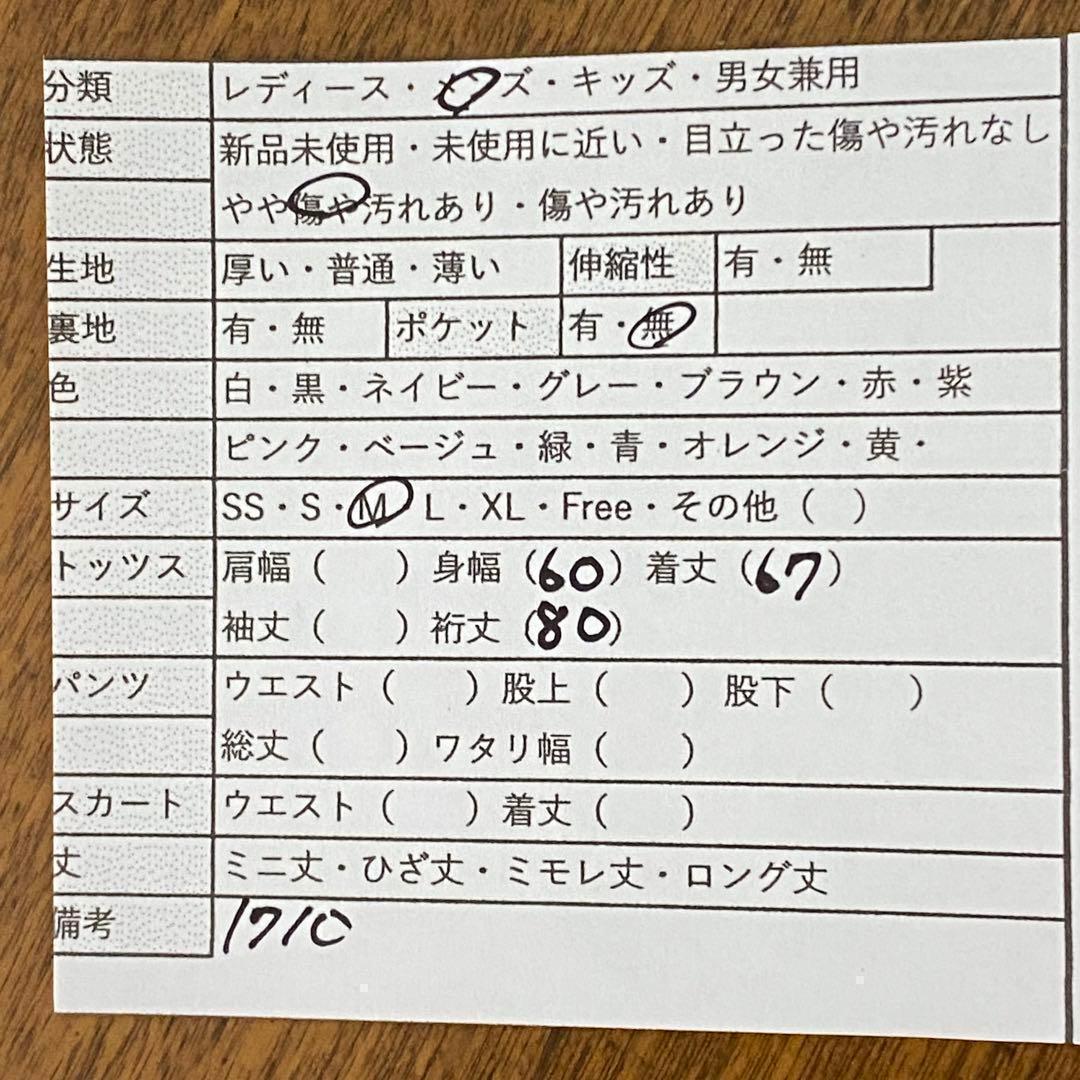 分類 レディース・メンズ・キッズ・男女兼用
状態 新品未使用・未使用に近い・目立った傷や汚れなし
やや傷や汚れあり・傷や汚れあり
生地 厚い・普通・薄い 伸縮性 有・無
裏地 有・無 ポケット 有・無
色 白・黒・ネイビー・グレー・ブラウン・赤・紫
ピンク・ベージュ・緑・青・オレンジ・黄・
サイズ SS・S・M L・XL・Free・その他（ ）
トッツス 肩幅（ ）身幅（60）着丈（67）
袖丈（ ）裄丈（80）
パンツ ウエスト（ ）股上（ ）股下（ ）
総丈（ ）ワタリ幅（ ）
スカート ウエスト（ ）着丈（ ）
丈 ミニ丈・ひざ丈・ミモレ丈・ロング丈
備考 1710